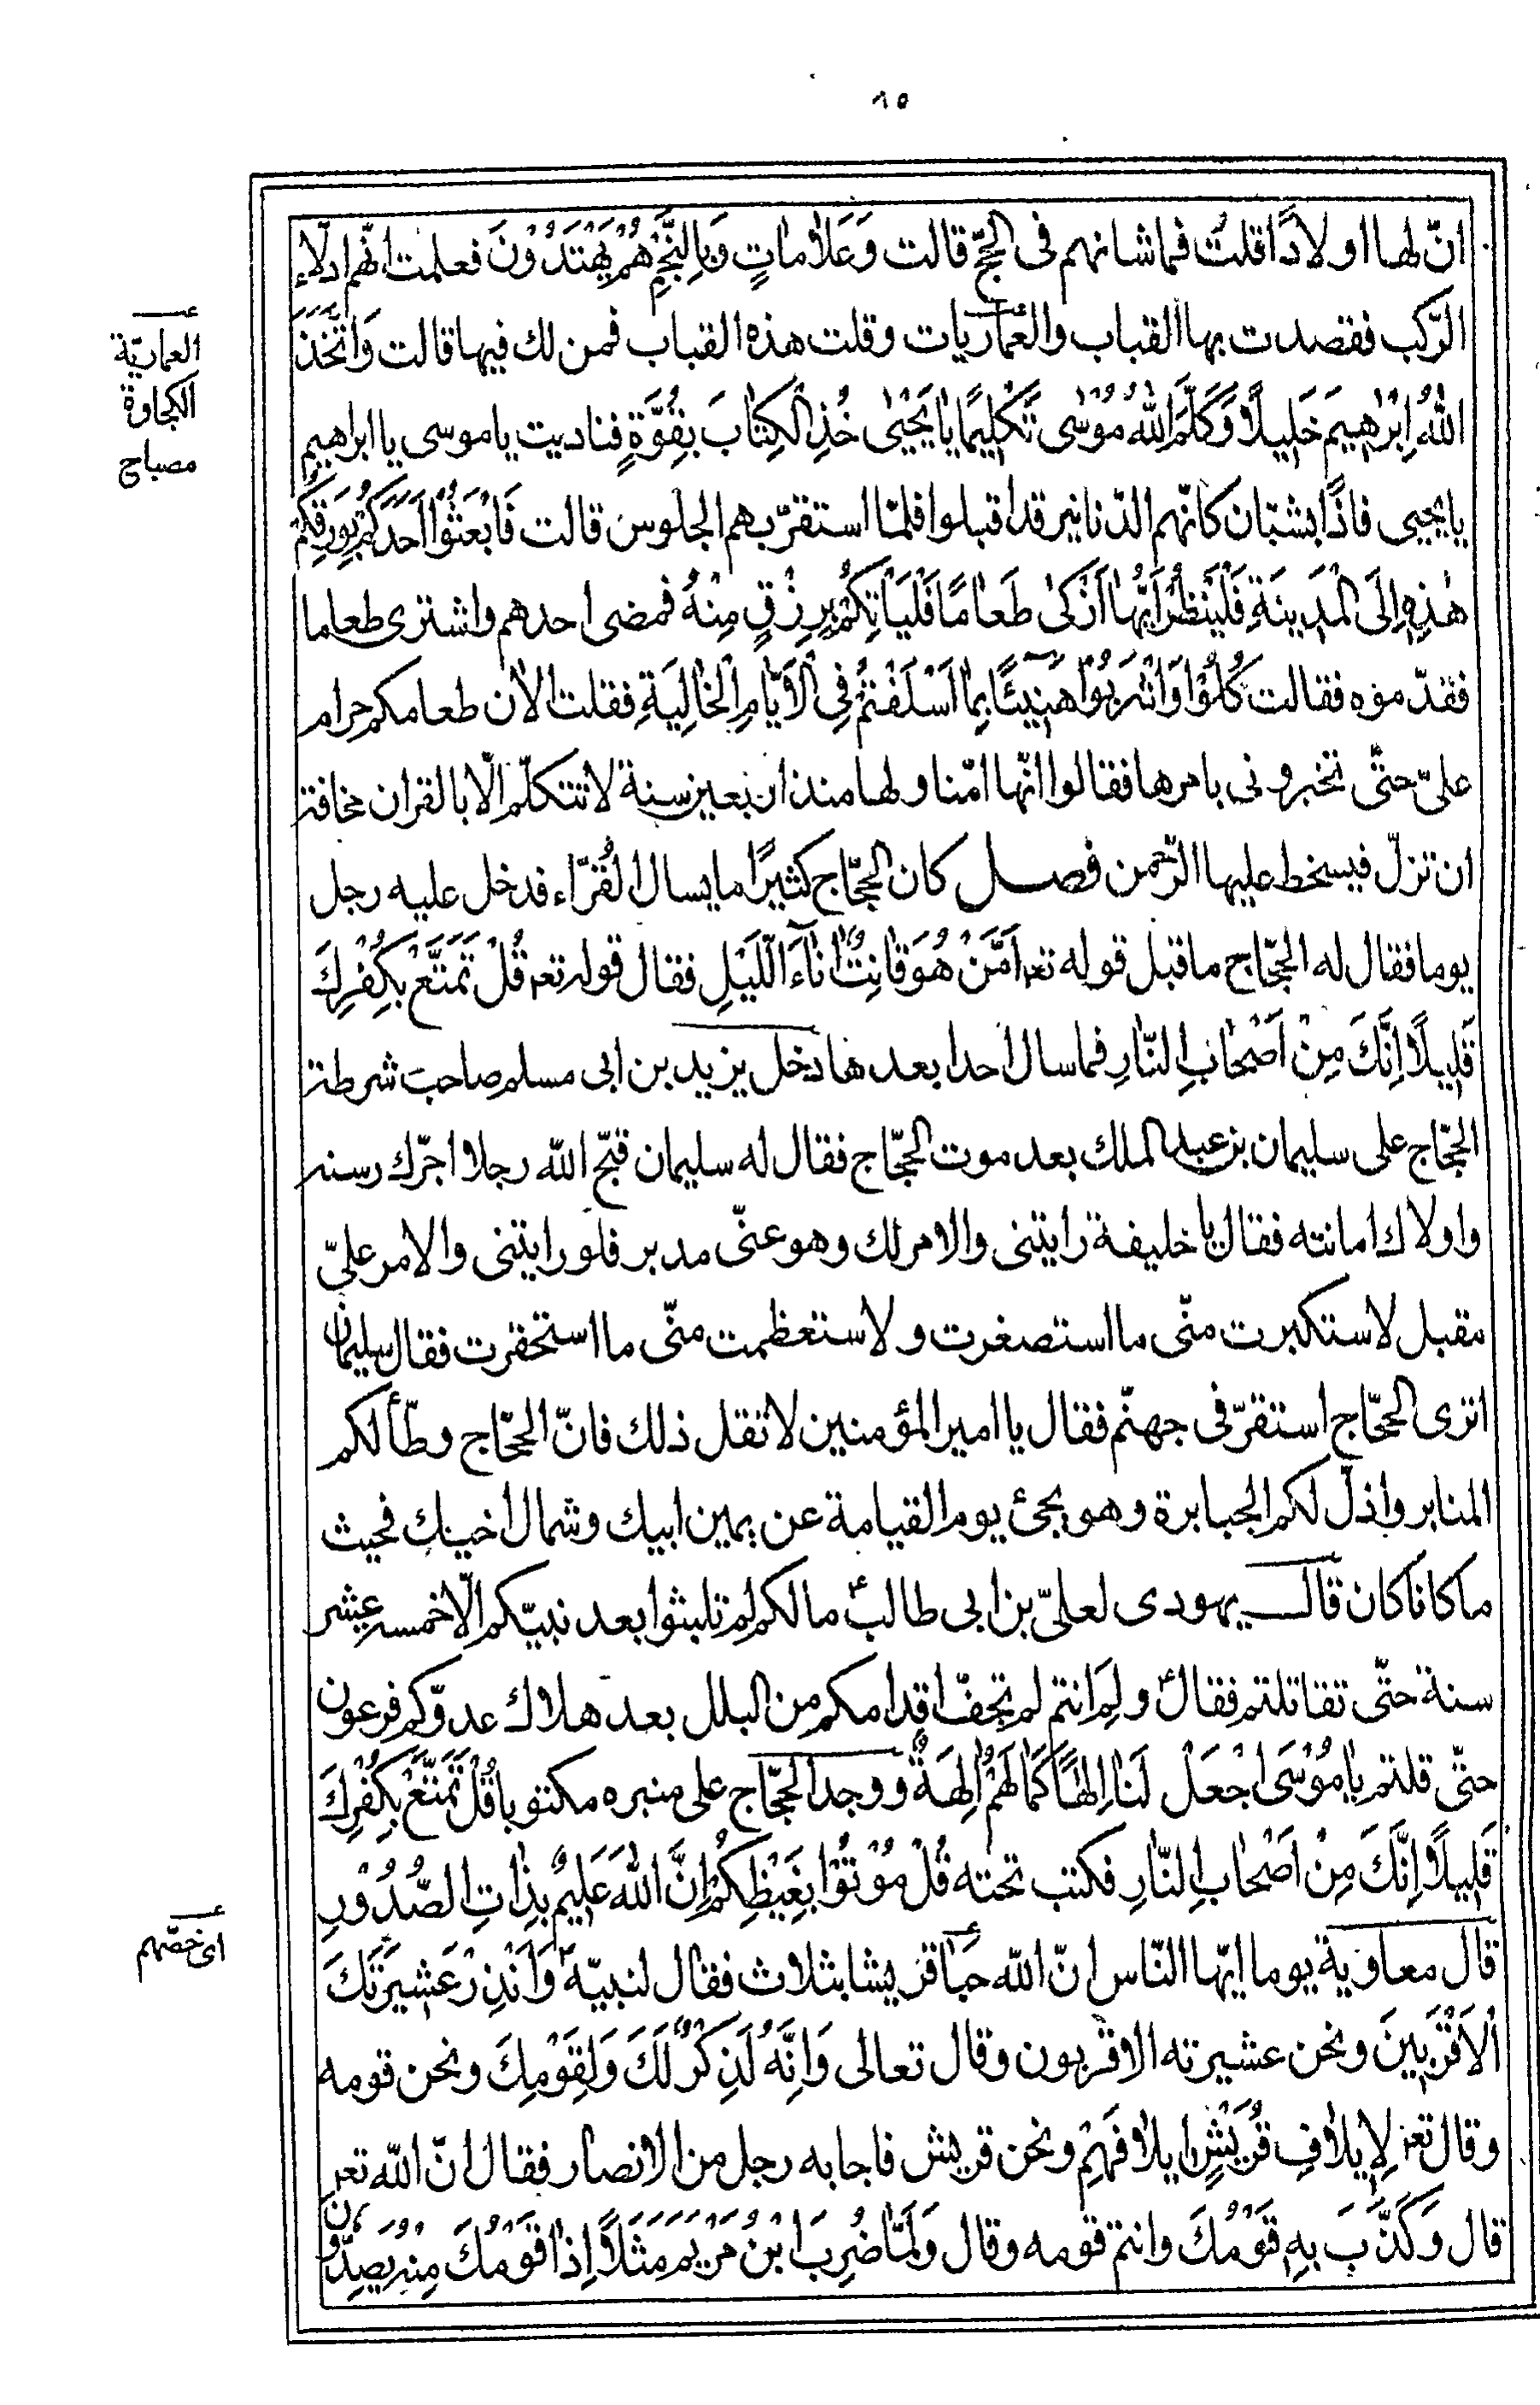 ٨٥
انّ لها اولادًا قلتُ فما شانهم فى الحجّ قالت وَعَلاٰمٰاتٍ وَبِالنَّجْمِ هُمْ يَهْتَدُوْنَ فعلمت انّهم ادلّاء
الرّكب فقصدت بها القباب والعمّاريات وقلت هذه القباب فمن لك فيها قالت وَاتَّخَذَ
اللّٰهُ اِبْرٰهِيمَ خَلِيلًا وَكَلَّمَ اللّٰهُ مُوْسٰى تَكْلِيمًا يٰا يَحْيٰى خُذِ الْكِتٰابَ بِقُوَّةٍ فناديت ياموسى يا ابراهيم
يا يحيى فاذًا بشبّان كانّهم الدّنانير قد اقبلوا فلمّا استقرّ بهم الجلوس قالت فَابْعَثُوْا اَحَدَكُمْ بِوَرِقِكُمْ
هٰذِهِ اِلَى الْمَدِينَةِ فَلْيَنْظُرْ اَيُّهٰا اَزْكىٰ طَعٰامًا فَلْيَاْتِكُمْ بِرِزْقٍ مِنْهُ فمضى احدهم واشترى طعاما
فقدّموه فقالت كُلُوْا وَاشْرَبُوْا هَنِيئًا بِمٰا اَسْلَفْتُمْ فِى الْاَيّٰامِ الْخٰالِيَةِ فقلت الان طعامكم حرام
علىّ حتّى تخبرونى بامرها فقالوا انّها امّنا ولها منذ اربعين سنة لا تتكلّم الّا بالقران مخافة
ان تزلّ فيسخط عليها الرّحمن فصـــل كان الحجّاج كثيرًا ما يسال القُرّاء فدخل عليه رجل
يوما فقال له الحجّاج ما قبل قوله تعم اَمَّنْ هُوَ قٰانِتٌ اٰنٰاءَ اللَّيْلِ فقال قوله تعم قُلْ تَمَتَّعْ بِكُفْرِكَ
قَلِيلًا اِنَّكَ مِنْ اَصْحٰابِ النّٰارِ فما سال احدا بعدها دخل يزيد بن ابى مسلم صاحب شرطة
الحجّاج على سليمان بن عبد الملك بعد موت الحجّاج فقال له سليمان قبّح الله رجلا اجرّك رسنه
واولاك امانته فقال يا خليفة رايتنى والامر لك وهو عنّى مدبر فلو رايتنى والامر علىّ
مقبل لاستكبرت منّى ما استصغرت ولاستعظمت منّى ما استحقرت فقال سليمان
اترى الحجّاج استقرّ فى جهنّم فقال يا امير المؤمنين لا تقل ذلك فانّ الحجّاج وطّأ لكم
المنابر واذلّ لكم الجبابرة وهو يجئ يوم القيامة عن يمين ابيك وشمال اخيك فحيث
ما كانا كان قالــ يهودى لعلىّ بن ابى طالب ع ما لكم لم تلبثوا بعد نبيّكم الّا خمسه عشر
سنة حتّى تقاتلتم فقال ع ولِمَ انتم لم تجفّ اقدامكم من البلل بعد هلاك عدوّكم فرعون
حتّى قلتم يٰا مُوْسَى اجْعَلْ لَنٰا اِلٰهًا كَمٰا لَهُمْ اٰلِهَةٌ ووجد الحجّاج على منبره مكتوبا قُلْ تَمَتَّعْ بِكُفْرِكَ
قَلِيلًا اِنَّكَ مِنْ اَصْحٰابِ النّٰارِ فكتب تحته قُلْ مُوْتُوْا بِغَيْظِكُمْ اِنَّ اللّٰهَ عَلِيمٌ بِذٰاتِ الصُّدُوْرِ
قال معاوية يوما ايّها النّاس انّ الله حَبَا قريشا بثلاث فقال لنبيّه وَاَنْذِرْ عَشِيرَتَكَ
الْاَقْرَبِينَ ونحن عشيرته الاقربون وقال تعالى وَاِنَّهُ لَذِكْرٌ لَكَ وَلِقَوْمِكَ ونحن قومه
وقال تعم لِاِيلٰافِ قُرَيْشٍ اِيلٰافِهِمْ ونحن قريش فاجابه رجل من الانصار فقال انّ الله تعم
قال وَكَذَّبَ بِهِ قَوْمُكَ وانتم قومه وقال وَلَمّٰا ضُرِبَ ابْنُ مَرْيَمَ مَثَلًا اِذٰا قَوْمُكَ مِنْهُ يَصِدُّونَ
العماريّة
الكجاوة
مصباح
اى خصّهم